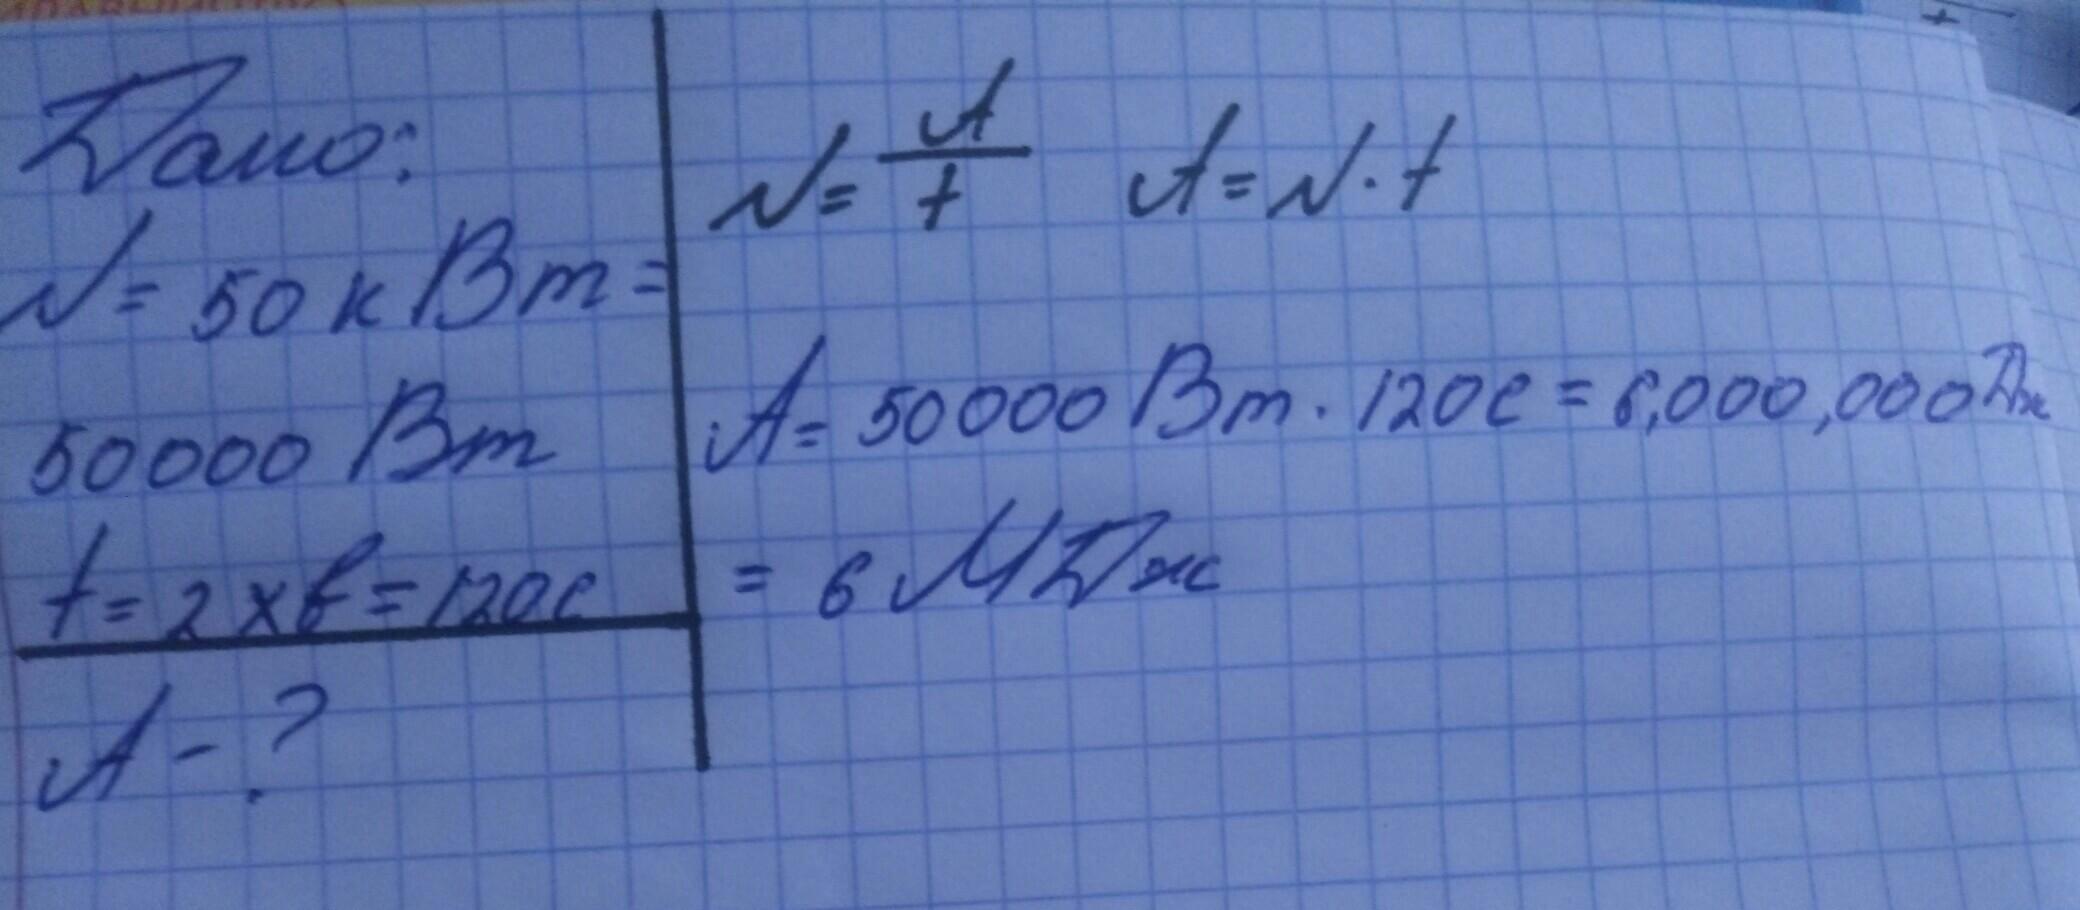 Дано:
N = 50 кВт =
50000 Вт
t = 2 хв = 120с
A - ?
N = A/t A = N · t
A = 50000 Вт · 120с = 6,000,000 Дж
= 6 МДж